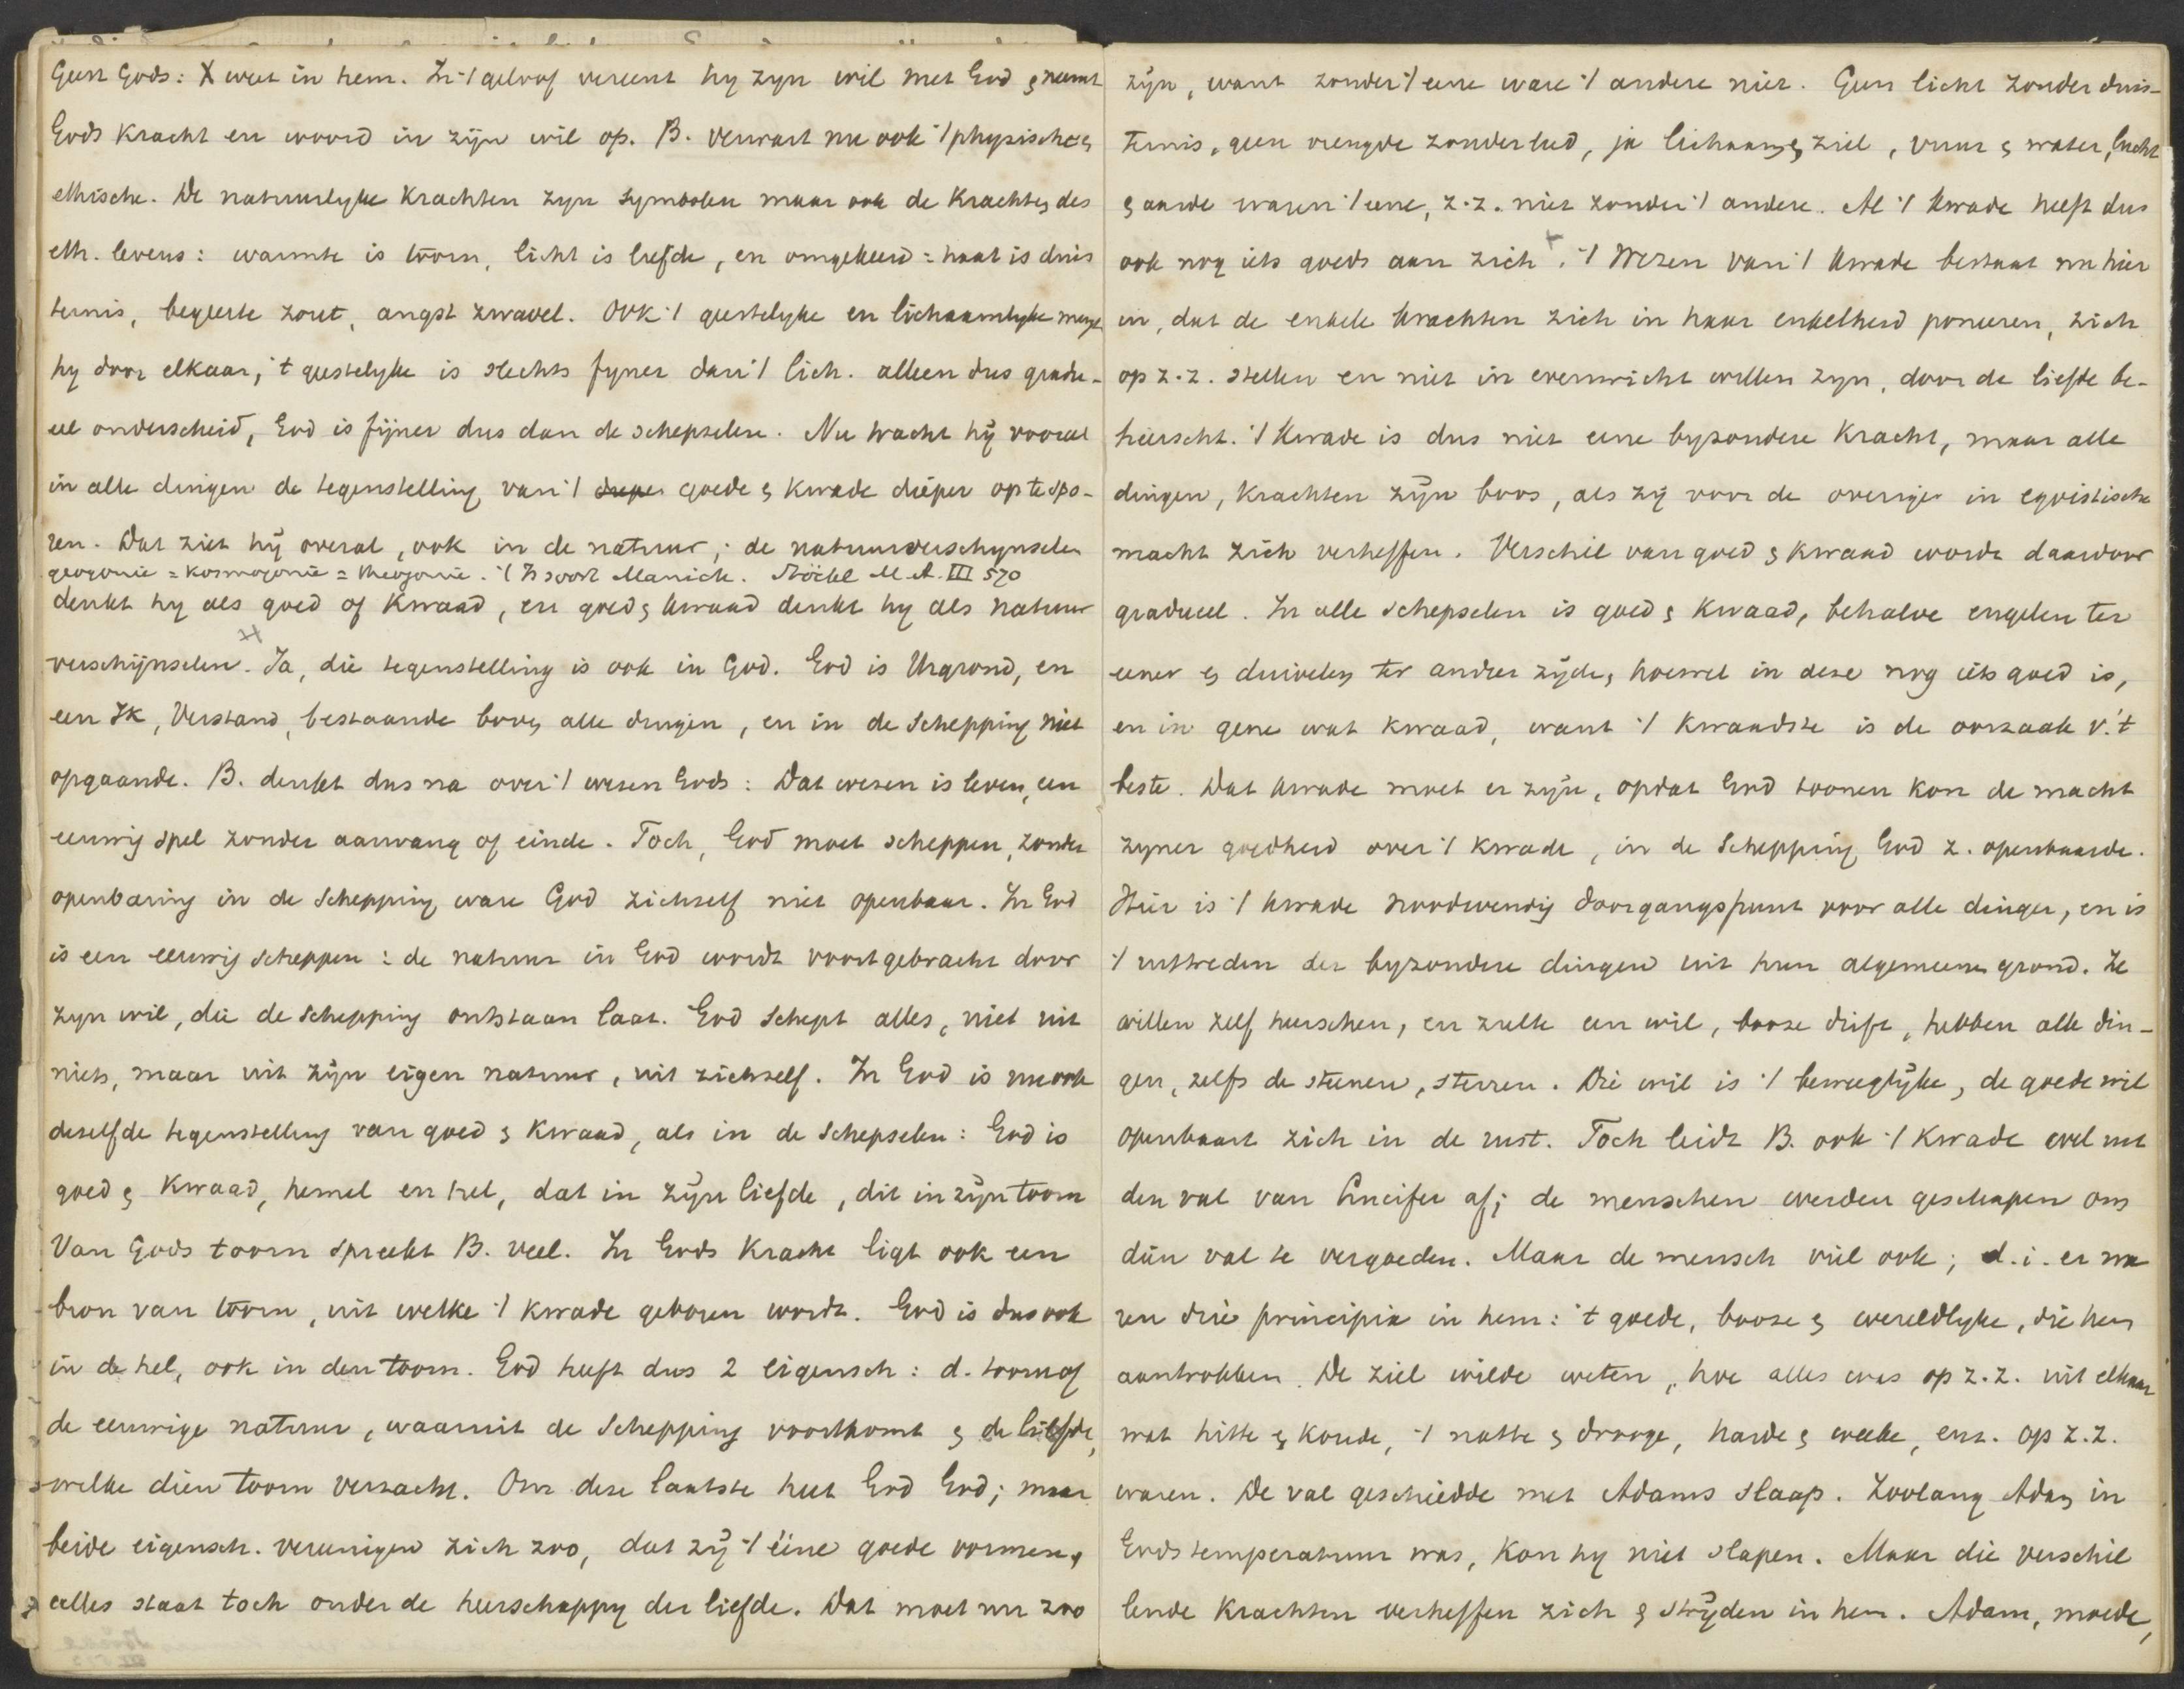 Geest Gods: X weet in hem. In 't geloof vereent hy zyn wil met God & neemt
Gods Kracht en woord in zijn wil op. B. verwart nu ook 't physische &
ethische. De natuurlyke Krachten zyn symbolen maar ook de Krachten des
eth. levens: warmte is toorn, licht is liefde, en omgekeerd = haat is duis
ternis, begeerte zout, angst zwavel. Ook 't geestelyke en lichaamlyke mengt
hy door elkaar; 't geestelyke is slechts fyner dan 't lich. alleen dus gradu-
eel onderscheid, God is fijner dus dan de schepselen. Nu tracht hij vooral
in alle dingen de tegenstelling van 't dieper goede & kwade dieper op te spo-
ren. Dat ziet hij overal, ook in de natuur; de natuurverschynselen
geogonie = Kosmogonie = theogonie. 't Is soort Manich. Stöckl M.A. III 570
denkt hy als goed of Kwaad, en goed & kwaad denkt hy als natuur
verschijnselen. Ja, die tegenstelling is ook in God. God is Urgrond, en
een Ik, Verstand, bestaande boven alle dingen, en in de Schepping niet
opgaande. B. denkt dus na over 't wezen Gods: Dat wezen is leven, een
eeuwig spel zonder aanvang of einde. Toch, God moet scheppen, zonder
openbaring in de Schepping ware God zichzelf niet openbaar. In God
is een eeuwig scheppen: de natuur in God wordt voortgebracht door
zyn wil, die de Schepping ontstaan laat. God schept alles, niet uit
niets, maar uit zijn eigen natuur, uit zichzelf. In God is nu ook
dezelfde tegenstelling van goed & Kwaad, als in de Schepselen: God is
goed & Kwaad, hemel en hel, dat in zijn liefde, dit in zijn toorn
Van Gods toorn spreekt B. veel. In Gods Kracht ligt ook een
bron van toorn, uit welke 't kwade geboren wordt. God is dus ook
in de hel, ook in den toorn. God heeft dus 2 eigensch: d. toorn of
de eeuwige natuur, waaruit de Schepping voortkomt & de liefde,
welke dien toorn verzacht. Om deze laatste heet God God; maar
beide eigensch. vereenigen zich zoo, dat zij 't ééne goede vormen,
alles staat toch onder de heerschappy der liefde. Dat moet nu zoo
zijn, want zonder 't eene ware 't andere niet. Geen licht zonder duis-
ternis, geen vreugde zonder leed, ja lichaam & ziel, vuur & water, lucht
& aarde waren 't eene, z.z. niet zonder 't andere. Al 't kwade heeft dus
ook nog iets goeds aan zich +. 't Wezen van 't kwade bestaat nu hier
in, dat de enkele krachten zich in haar enkelheid poneeren, zich
op z.z. stellen en niet in evenwicht willen zyn, door de liefde be-
heerscht. 't Kwade is dus niet eene byzondere Kracht, maar alle
dingen, Krachten zijn boos, als zij voor de overige in egoistische
macht zich verheffen. Verschil van goed & kwaad wordt daardoor
gradueel. In alle schepselen is goed & kwaad, behalve engelen ter
eener & duivelen ter andere zijde, hoewel in deze nog iets goed is,
en in gene wat kwaad, want 't kwaadste is de oorzaak v. 't
beste. Dat kwade moet er zijn, opdat God toonen kon de macht
zyner goedheid over 't kwade, in de Schepping God z. openbaarde.
Hier is 't kwade noodwendig doorgangspunt voor alle dingen, en is
't uittreden der byzondere dingen uit hun algemeenen grond. Ze
willen zelf heerschen, en zulk een wil, booze drift, hebben alle din-
gen, zelfs de steenen, sterren. Die wil is 't beweeglijke, de goede wil
openbaart zich in de rust. Toch leidt B. ook 't Kwade wel uit
den val van Lucifer af; de menschen werden geschapen om
dien val te vergoeden. Maar de mensch viel ook; d.i. er wa
ren drie principia in hem: 't goede, booze & wereldlyke, die hem
aantrokken. De ziel wilde weten, hoe alles was op z.z. uit elkaar
wat hitte & koude, 't natte & drooge, harde & weeke, enz. op z.z.
waren. De val geschiedde met Adams slaap. Zoolang Adam in
Gods temperatuur was, kon hy niet slapen. Maar die verschil
lende Krachten verheffen zich & strijden in hem. Adam, moede,